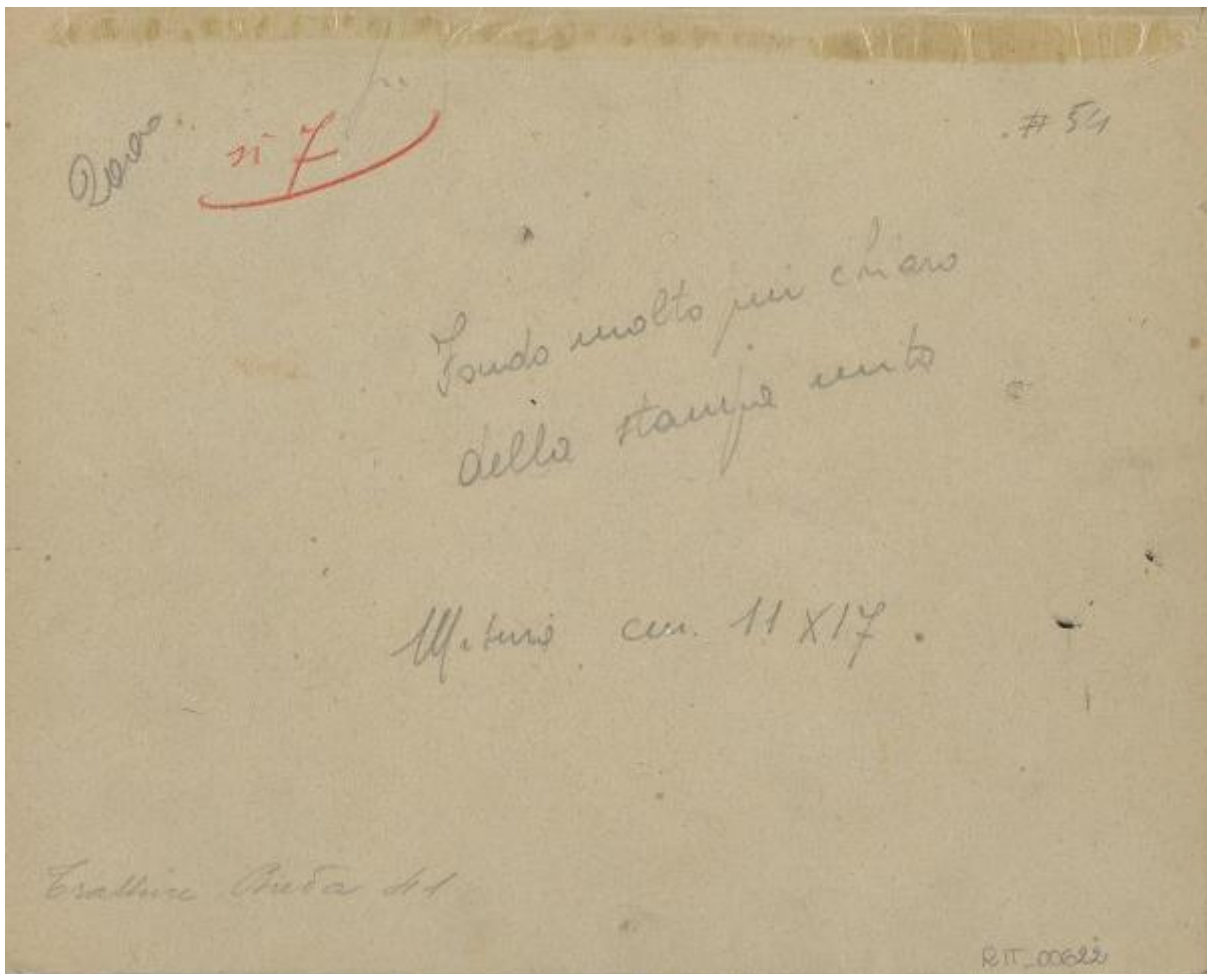 n° 7
# 54
Fondo molto più chiaro
della stampa unito
Misura cm. 11 X 17.
Trattrice Breda 41
RIT_00622